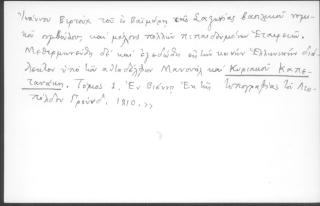 Ἰωάννου Βερτούχ τοῦ ἐν Βαϊμάρῃ τῆς Σαξωνίας βασιλικοῦ νομι-
κοῦ συμβούλου, καὶ μέλους πολλῶν πεπαιδευμένων Ἑταιρειῶν.
Μεθερμηνευθὲν δὲ καὶ ἐκδοθὲν εἰς τὴν κοινὴν Ἑλληνικὴν διά-
λεκτον ὑπὸ τῶν αὐταδέλφων Μανουὴλ καὶ Κυριακοῦ Καπε-
τανάκη. Τόμος 1. Ἐν Βιέννῃ Ἐκ τῆς Τυπογραφίας τοῦ Λεο-
πόλδου Γρούνδ. 1810.»